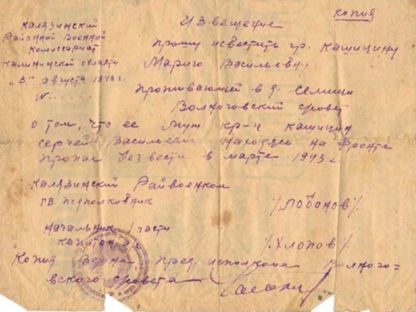 Копия
Калязинский
Районный Военный
Комиссариат
Калининской области
"3" августа 1946 г.
№......
Извещение
Прошу известить гр. Кашицину
Марию Васильевну
Проживающей в д. Селищи
Волнуговский
о том, что ее муж кр-ц Кашицин
Сергей Васильевич находясь на фронте
пропал без вести в марте 1943 г.
Калязинский Райвоенком
гв. подполковник /Лобанов/.
Начальник части
капитан а/с /Хлопов/.
Копия верна пред. исполкома
вского